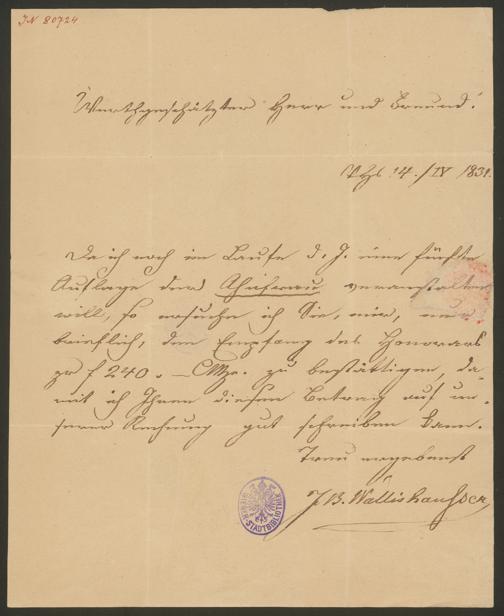 IN 80724
Werthgeschätzter Herr und Freund!
14./IV 1831.
Da ich noch im Laufe d. J. eine fünfte
Auflage der Ahnfrau veranstalten
will, so ersuche ich Sie, mir, nur
brieflich, den Empfang des Honorars
zu f 240 „ — CMze. zu bestättigen, da-
mit ich Ihnen diesen Betrag auf un-
serer Rechnung gut schreiben kann.
Treu ergebenst
J B. Wallishausser
WIENER STADTBIBLIOTHEK